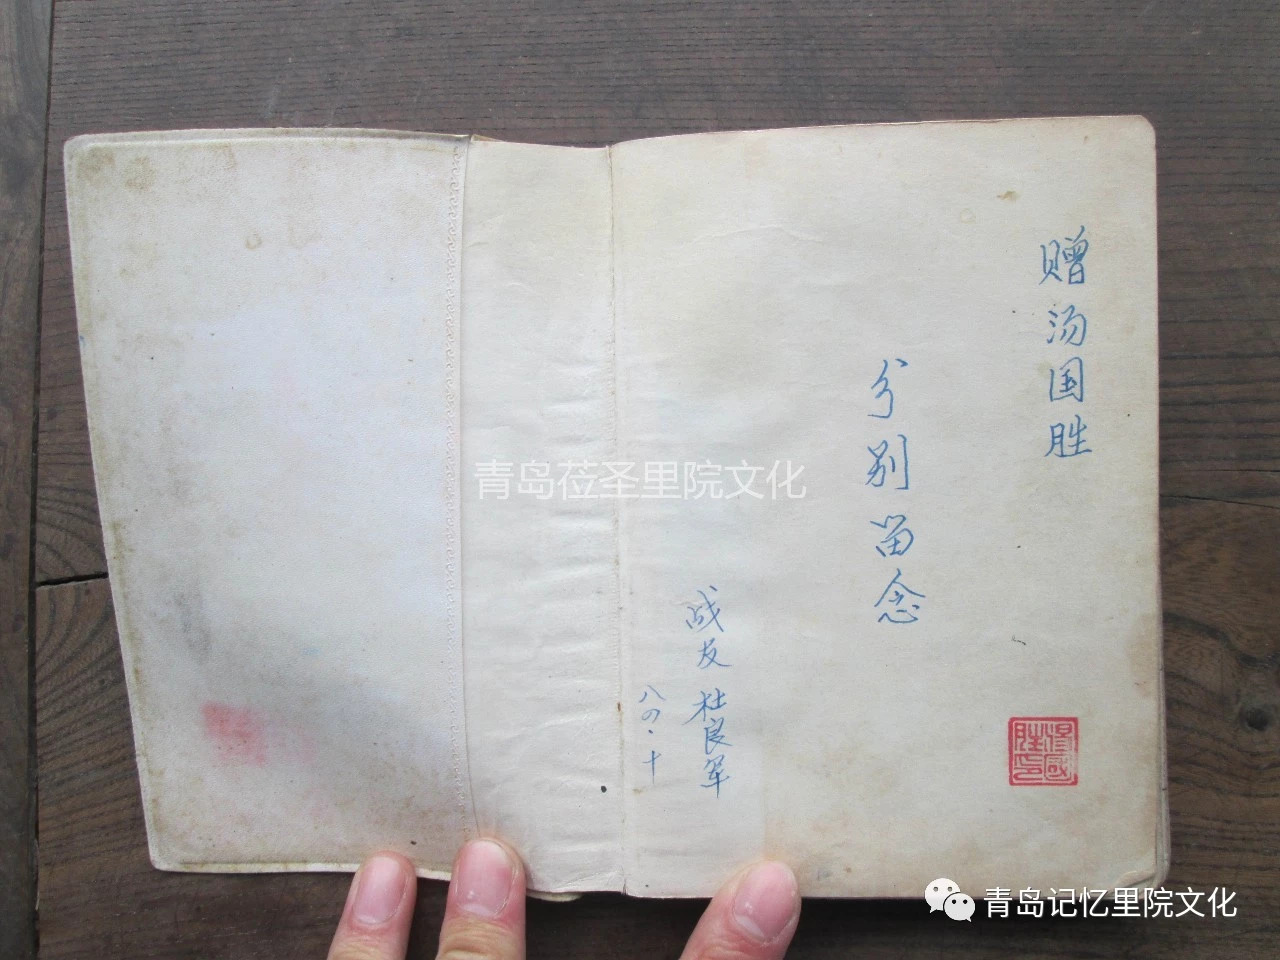 赠汤国胜
分别留念
战友 杜良军
八四·十
汤國胜印
青岛莅圣里院文化
青岛记忆里院文化